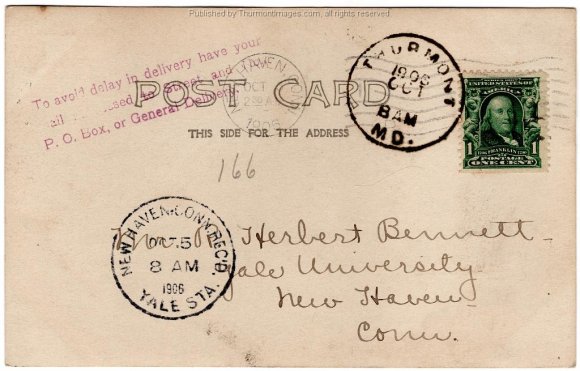 Published by ThurmontImages.com, all rights reserved
To avoid delay in delivery have your
all addressed to Street and
P. O. Box, or General Delivery.
POST CARD
NEW HAVEN
OCT
1906
THURMONT
1906
OCT
8AM
MD.
UNITED STATES OF
AMERICA
1 1706 FRANKLIN 1790 1
POSTAGE
ONE CENT
THIS SIDE FOR THE ADDRESS
166
NEW HAVEN, CONN. REC'D.
OCT 5
8 AM
1906
YALE STA.
Herbert Bennett
Yale University
New Haven
Conn.